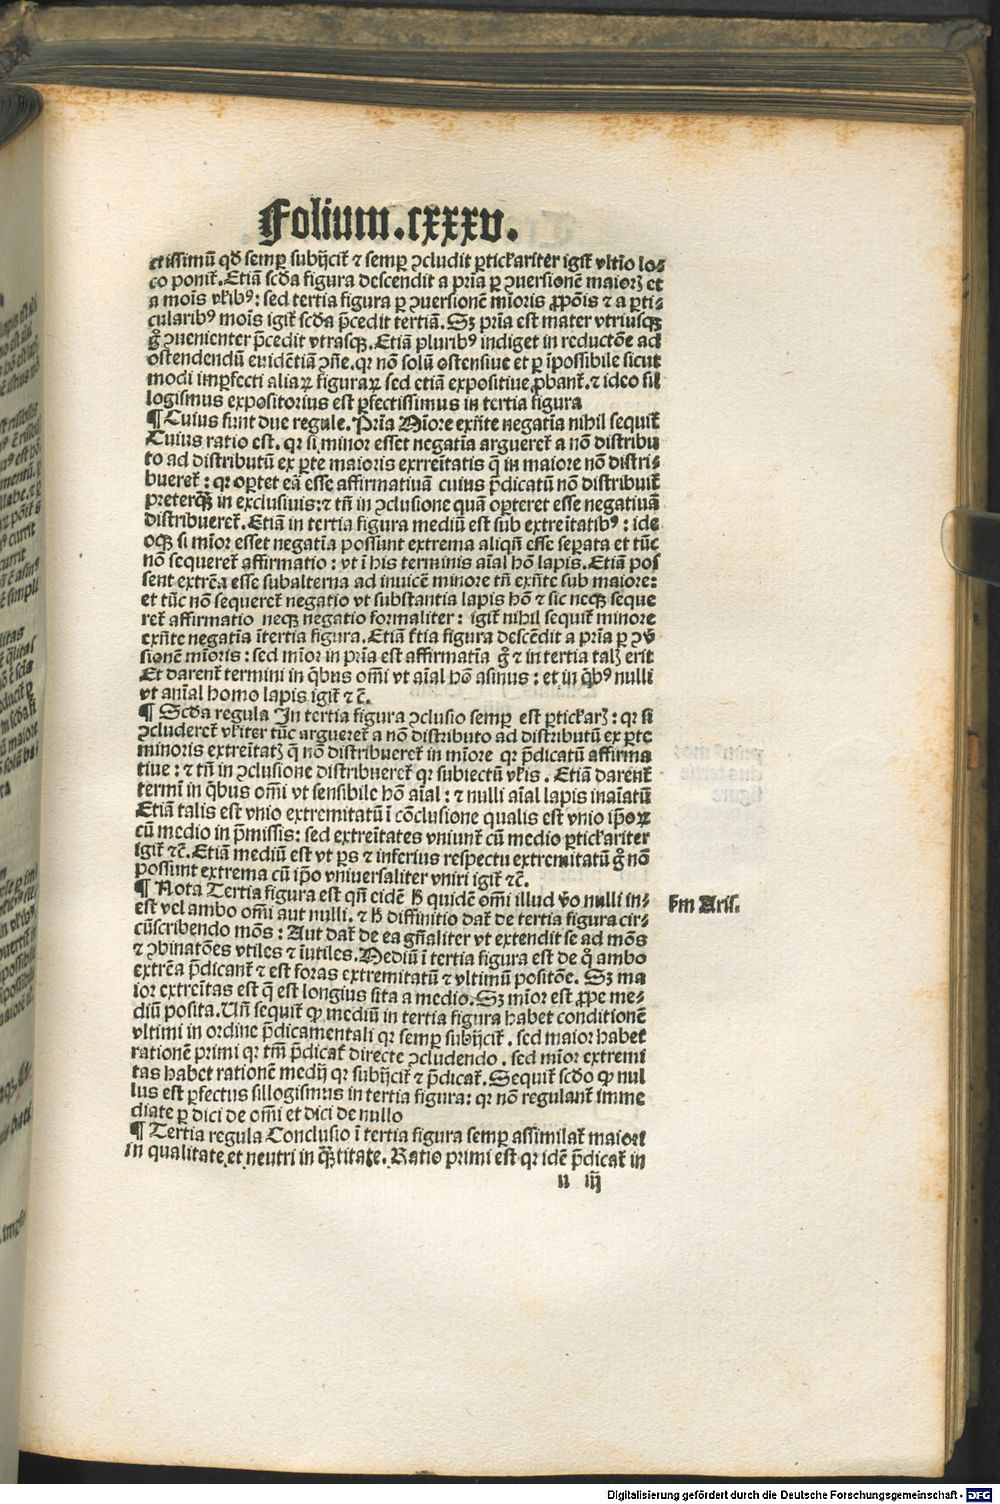 Folium.cxxxv.
et issimū qđ semꝑ subijcit᷑ ⁊ semꝑ ꝯcludit ꝑticl'ariter igit᷑ vltīo lo⸗
co ponit᷑. Etiā scđa figura descendit a pria ꝑ ꝯversionē maioris et
a mōis vl'ibꝰ: sed tertia figura ꝑ ꝯversionē mīoris ꝓpōis ⁊ a ꝑti⸗
cularibꝰ mōis igit᷑ scđa p̄cedit tertiā. Sꝫ pria est mater vtriusqꝫ
g̊ ꝯuenienter p̄cedit vtrasqꝫ. Etiā pluribꝰ indiget in reductōe ad
ostendendū euidētiā ꝯn̄e. qꝛ nō solū ostensiue et ꝑ īpossibile sicut
modi imꝑfecti aliaꝝ figuraꝝ sed etiā expositiue ꝓbant᷑. ⁊ ideo sil
logismus expositorius est ꝑfectissimus in tertia figura
¶ Cuius sunt due regule. Pria Mīore exn̄te negatīa nihil sequit᷑
Cuius ratio est. qꝛ si minor esset negatīa argueret᷑ a nō distribu
to ad distributū ex ꝑte maioris exrreītatis q̄ in maiore nō distri⸗
bueret᷑: qꝛ oꝑtet eā esse affirmatiuā cuius p̄dicatū nō distribuit᷑
preterqꝫ in exclusiuis: ⁊ tn̄ in ꝯclusione quā oꝑteret esse negatiuā
distribueret᷑. Etiā in tertia figura mediū est sub extreītatibꝰ: ide
oqꝫ si mīor esset negatīa possunt extrema aliqn̄ esse seꝑata et tūc
nō sequeret᷑ affirmatio: vt ī his terminis aīal hō lapis. Etiā pos
sent extrēa esse subalterna ad inuicē minore tn̄ exn̄te sub maiore:
et tūc nō sequeret᷑ negatio vt substantia lapis hō ⁊ sic necqꝫ seque
ret᷑ affirmatio neqꝫ negatio formaliter: igit᷑ nihil sequit᷑ minore
exn̄te negatīa ītertia figura. Etiā t̄tia figura descēdit a pria ꝑ ꝯv̄
sionē mīoris: sed mīor in pria est affirmatīa g̊ ⁊ in tertia talis erit
Et darent᷑ termini in q̄bus om̄i vt aīal hō asinus: et in q̄bꝰ nulli
vt anīal homo lapis igit᷑ ⁊ c̄.
¶ Scđa regula In tertia figura ꝯclusio semꝑ est ꝑticl'aris: qꝛ si
ꝯcluderet᷑ vl'iter tūc argueret᷑ a nō distributo ad distributū ex ꝑte
minoris extreītatis q̄ nō distribueret᷑ in mīore qꝛ p̄dicatū affirma
tiue: ⁊ tn̄ in ꝯclusione distribueret᷑ qꝛ subiectū vl'is. Etiā darent᷑
termī in q̄bus om̄i vt sensibile hō aīal: ⁊ nulli aīal lapis inaīatū
Etiā talis est vnio extremitatū ī cōclusione qualis est vnio ip̄oꝝ
cū medio in p̄missis: sed extreītates vniunt᷑ cū medio ꝑticl'ariter
igit᷑ ⁊c̄. Etiā mediū est vt ꝑs ⁊ inferius respectu extremitatū g̊ nō
possunt extrema cū ip̄o vniuersaliter vniri igit᷑ ⁊c̄.
¶ Nota Tertia figura est qn̄ eidē h̄ quidē om̄i illud v̄o nulli in⸗
est vel ambo om̄i aut nulli. ⁊ h̄ diffinitio dat᷑ de tertia figura cir⸗
cūscribendo mōs: Aut dat᷑ de ea gn̄aliter vt extendit se ad mōs
⁊ ꝯbinatōes vtiles ⁊ īutiles. Mediū ī tertia figura est de q̊ ambo
extrēa p̄dicant᷑ ⁊ est foras extremitatū ⁊ vltimū positōe. Sꝫ ma
ior extreītas est q̄ est longius sita a medio. Sꝫ mīor est ꝓpe me⸗
diū posita. Vn̄ sequit᷑ ꝙ mediū in tertia figura habet conditionē
vltimi in ordine p̄dicamentali qꝛ semꝑ subijcit᷑. sed maior habet
rationē primi qꝛ tm̄ p̄dicat᷑ directe ꝯcludendo. sed mīor extremi
tas habet rationē medij qꝛ subijcit᷑ ⁊ p̄dicat᷑. Sequit᷑ scđo ꝙ nul
lus est ꝑfectus sillogismus in tertia figura: qꝛ nō regulant᷑ imme
diate ꝑ dici de om̄i et dici de nullo
¶ Tertia regula Conclusio ī tertia figura semꝑ assimilat᷑ maiori
in qualitate et neutri in qꝫtitate. Ratio primi est qꝛ idē p̄dicat᷑ in
s̄m Aris.
u iij
Digitalisierung gefördert durch die Deutsche Forschungsgemeinschaft - DFG